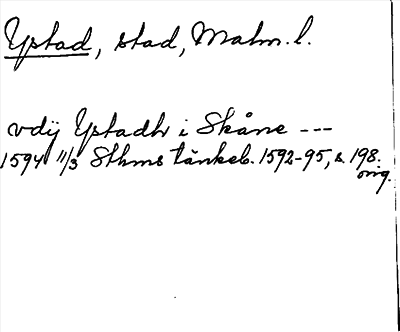 Ystad, stad, Malm. l.
vdij Ystadh i Skåne ---
1594 11/3 Sthms tänkeb. 1592-95, s. 198.
orig.